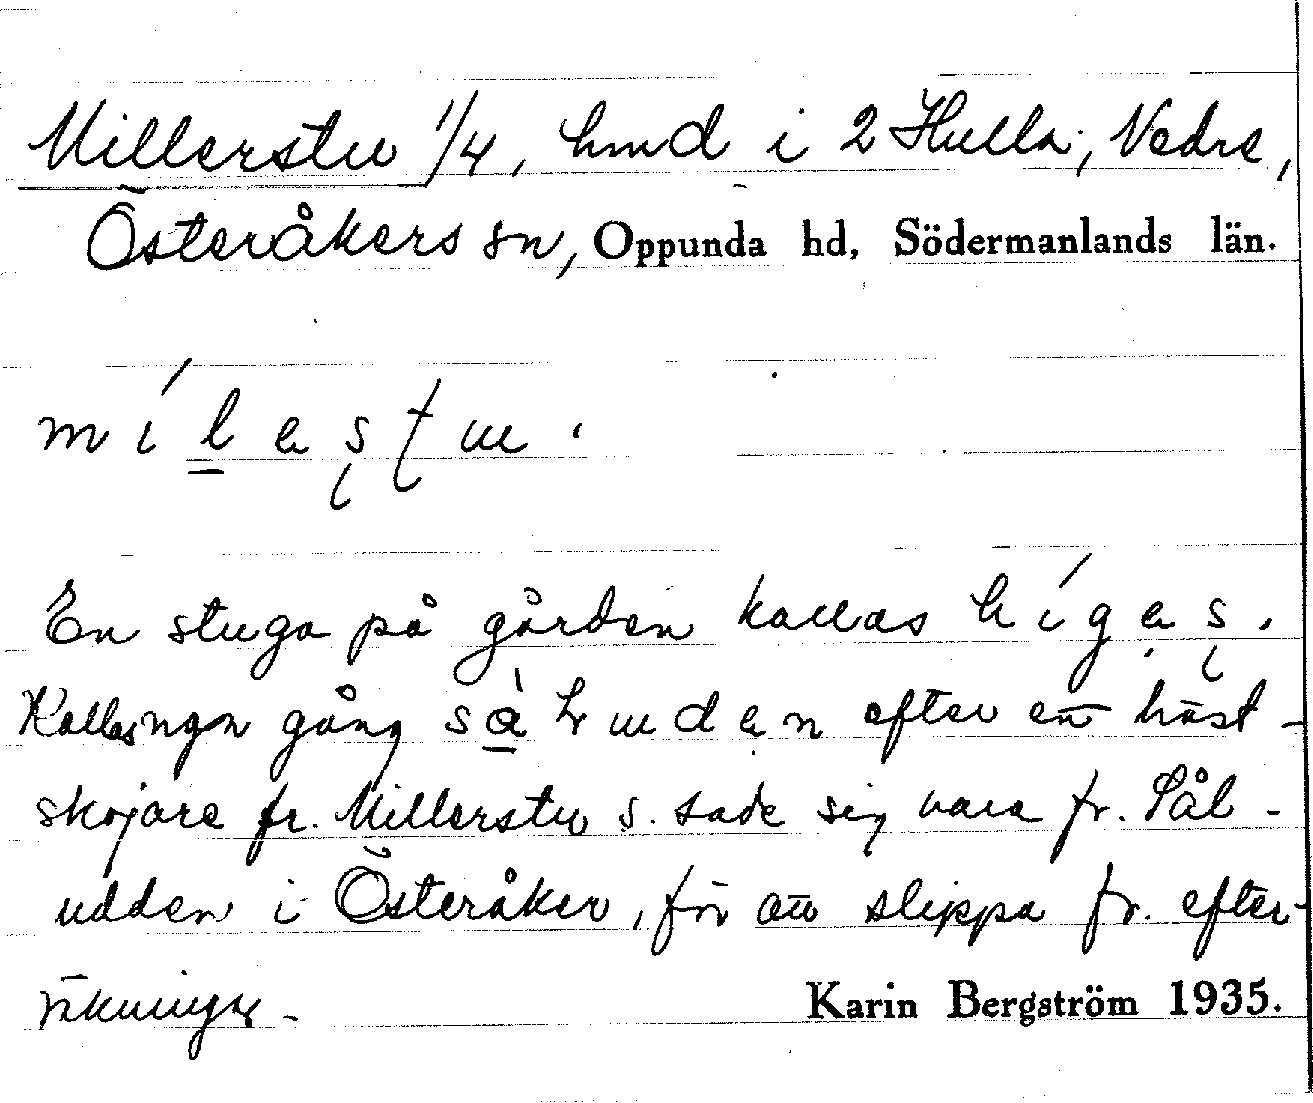 Millerstu 1/4, hmd i 2 Hulla, Vedre,
Österåkers sn, Oppunda hd, Södermanlands län.
mílastu.
En stuga på gården kallas hígas.
Kallas ngn gång sàludan efter en häst-
skojare fr. Millerstu s. sade sig vara fr. Sål-
udden i Österåker, för att slippa fr. efter-
räkningar.
Karin Bergström 1935.